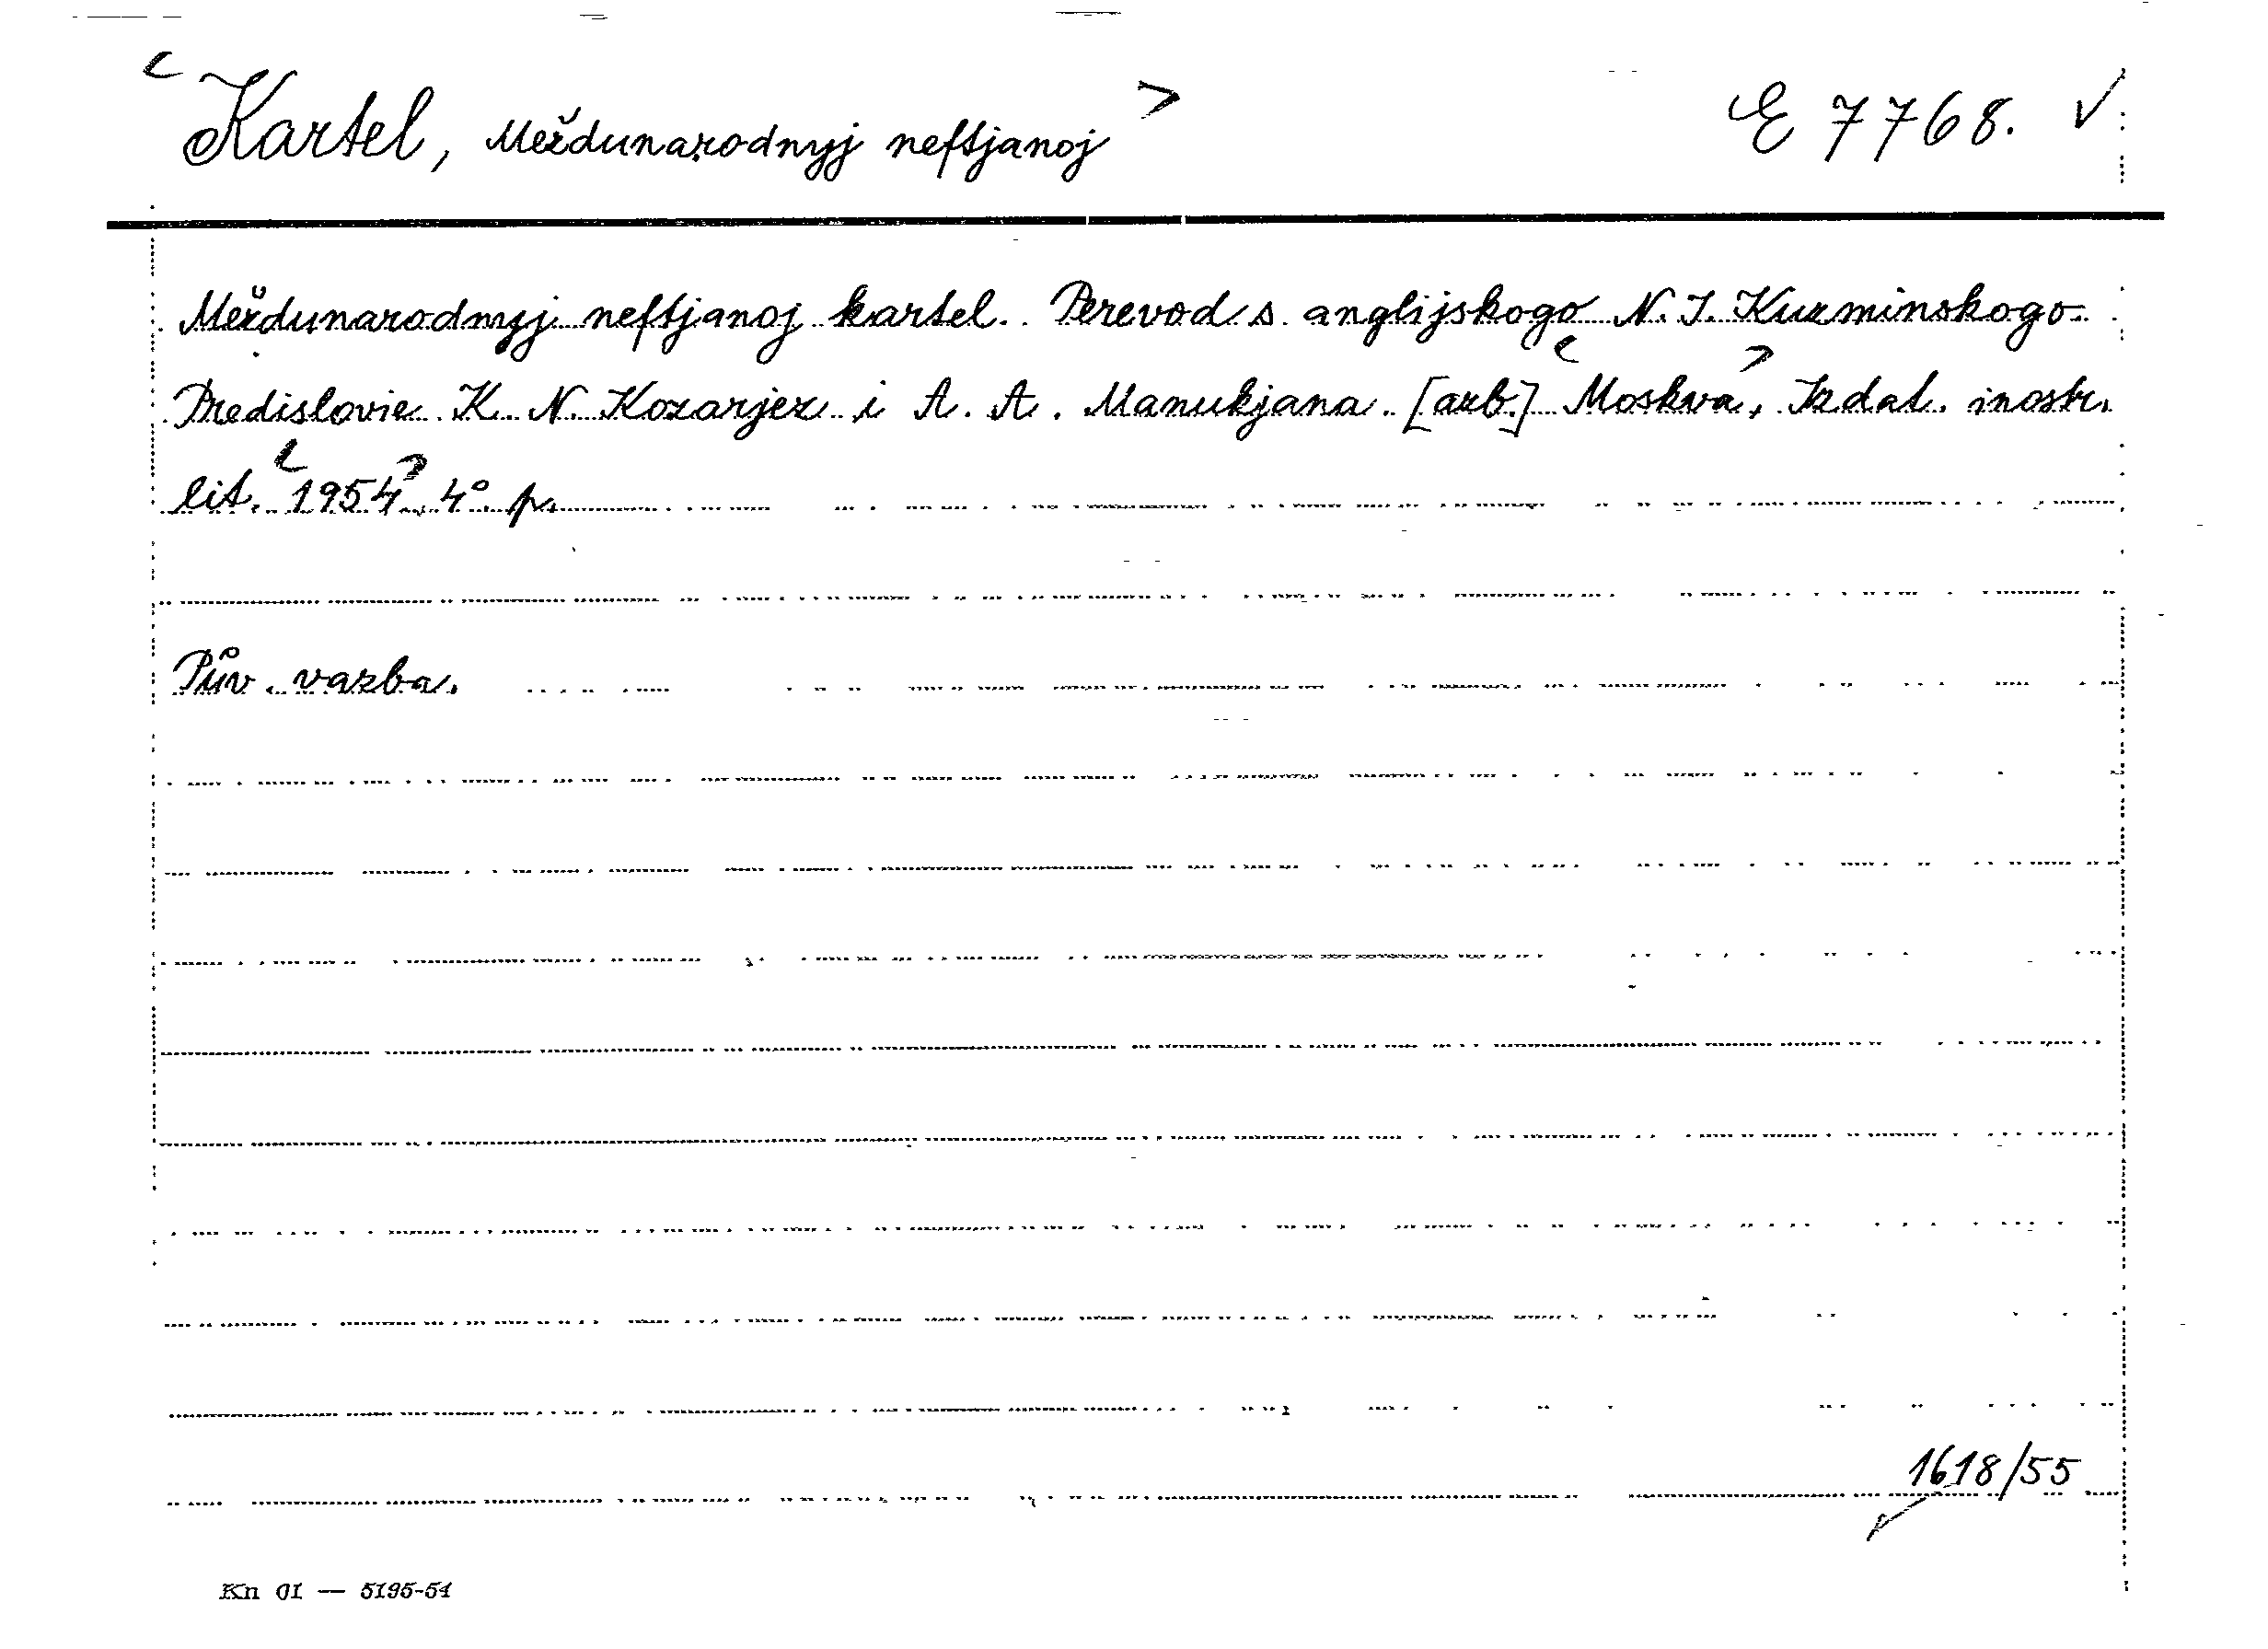 <Kartel, Meždunarodnyj neftjanoj> E 7768. ✓
Meždunarodnyj neftjanoj kartel. Perevod s anglijskogo N. I. Kuzminskogo.
Predislovie K. N. Kozarjez i A. A. Manukjana. [azb.] <Moskva>, Izdat. inostr.
lit. <1954>. 4° p.
Pův. vazba.
1618/55
Kn 01 — 5195-54